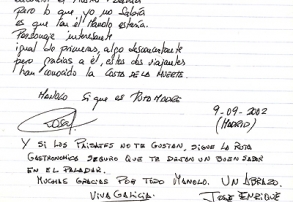 pero lo que yo no sabía
es que tan el Manolo estaría.
Personaje interesante
igual lo primeras, algo desconcertante
pero gracias a él, estos dos viajantes
han conocido la COSTA DE LA MUERTE.
MANOLO Sigue es
9-09-2002
(MADRID)
Y SI LOS PAISAJES NO TE GUSTAN, SIGUE LA RUTA
GASTRONOMICA SEGURO QUE TE DEJAN UN BUEN SABOR
EN EL PALADAR.
MUCHAS GRACIAS POR TODO MANOLO. UN ABRAZO.
VIVA GALICIA. JOSE ENRIQUE